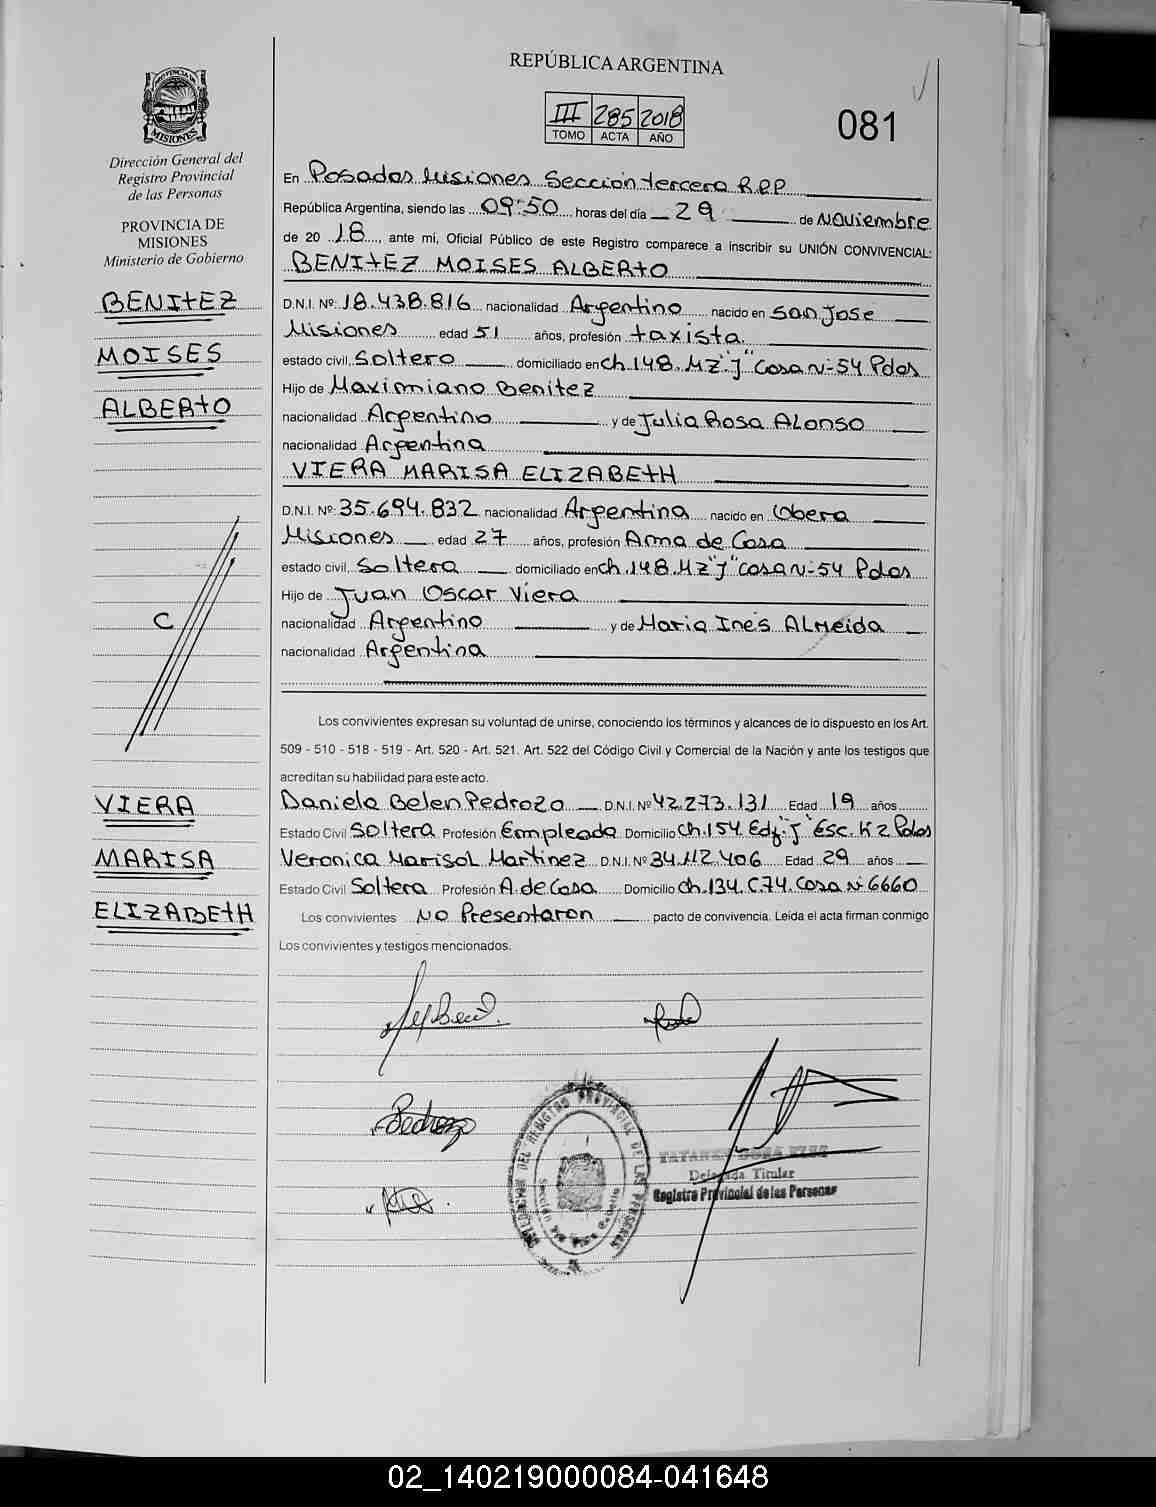 REPÚBLICA ARGENTINA
III 285 2018
TOMO ACTA AÑO
081
PROVINCIA DE
MISIONES
Dirección General del
Registro Provincial
de las Personas
PROVINCIA DE
MISIONES
Ministerio de Gobierno
BENITEZ
MOISES
ALBERTO
C
VIERA
MARISA
ELIZABETH
En Posadas Misiones Sección tercera R.P.P.
República Argentina, siendo las 09:50 horas del día 29 de Noviembre
de 20 18, ante mi, Oficial Público de este Registro comparece a inscribir su UNIÓN CONVIVENCIAL:
BENITEZ MOISES ALBERTO
D.N.I. Nº: 18.438.816 nacionalidad Argentino nacido en San Jose
Misiones edad 51 años, profesión taxista.
estado civil, Soltero domiciliado en Ch.148. MZ "J" Casa N-54 Pdas
Hijo de Maximiano Benitez
nacionalidad Argentino y de Julia Rosa Alonso
nacionalidad Argentina
VIERA MARISA ELIZABETH
D.N.I. Nº: 35.694.832 nacionalidad Argentina nacido en Obera
Misiones edad 27 años, profesión Ama de Casa
estado civil, Soltera domiciliado en Ch.148.MZ "J" Casa N-54 Pdas
Hijo de Juan Oscar Viera
nacionalidad Argentino y de Maria Inés Almeida
nacionalidad Argentina
Los convivientes expresan su voluntad de unirse, conociendo los términos y alcances de lo dispuesto en los Art.
509 - 510 - 518 - 519 - Art. 520 - Art. 521. Art. 522 del Código Civil y Comercial de la Nación y ante los testigos que
acreditan su habilidad para este acto.
Daniela Belen Pedrozo D.N.I. Nº 42.273.131 Edad 19 años
Estado Civil Soltera Profesión Empleada Domicilio Ch.154. Edf. "J" Esc. K2 Pdas
Veronica Marisol Martinez D.N.I. Nº 34.112.406 Edad 29 años
Estado Civil Soltera Profesión A. de Casa Domicilio Ch.134. C.74. Casa N-6660
Los convivientes No Presentaron pacto de convivencia. Leída el acta firman conmigo
Los convivientes y testigos mencionados.
Pedrozo
DEL REGISTRO PROVINCIAL DE LAS PERSONAS
Delegada Titular
Registro Provincial de las Personas
02_140219000084-041648